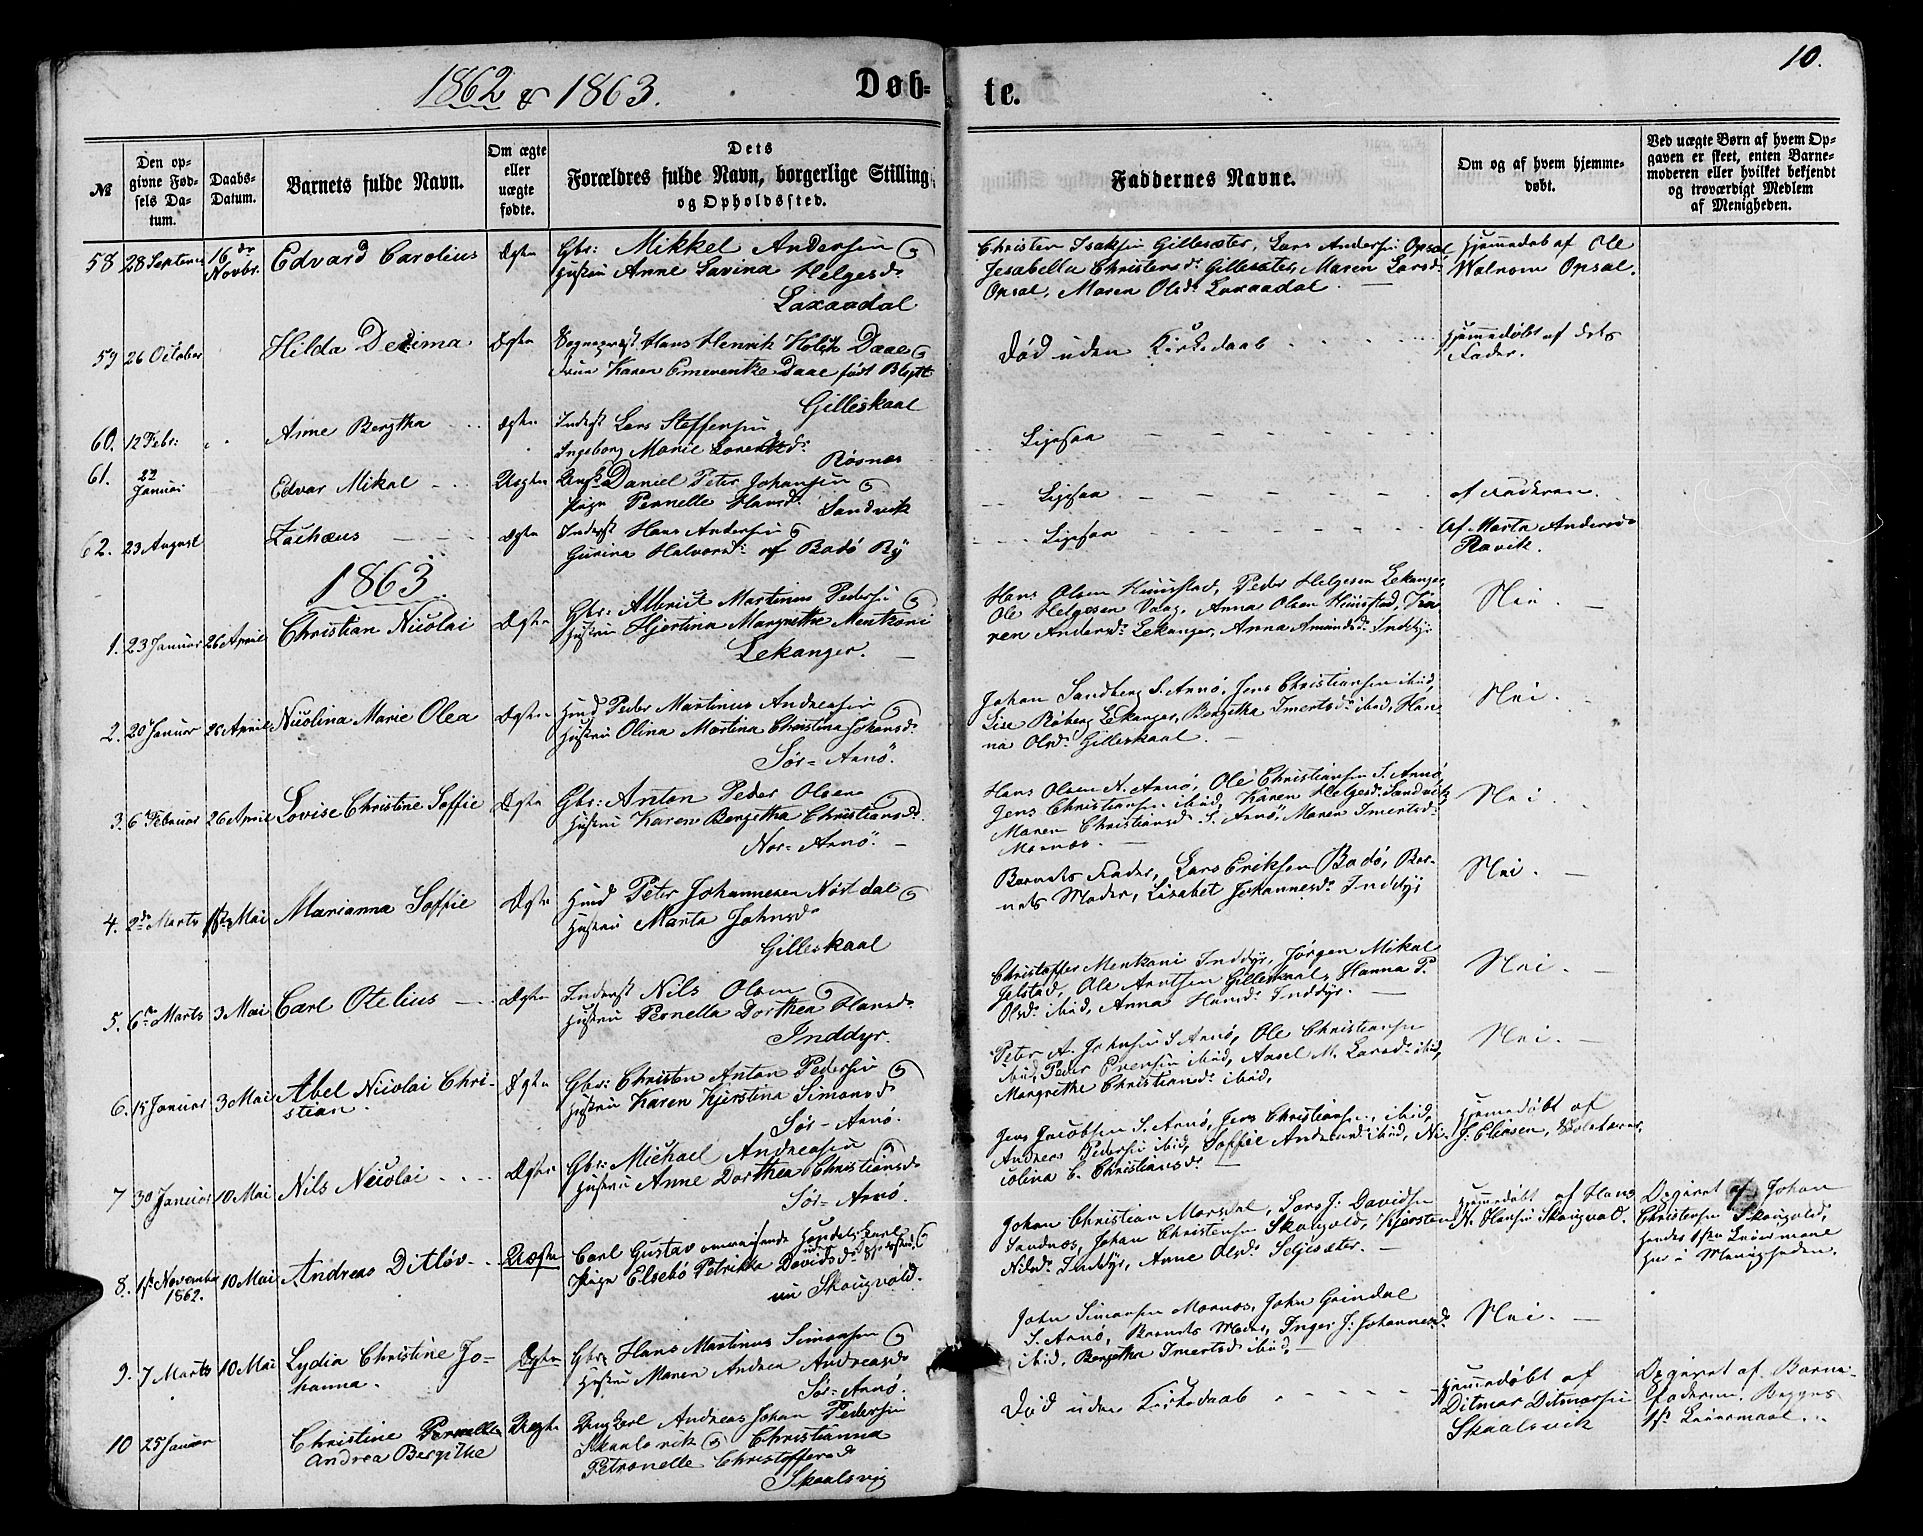 10.
1862 & 1863.
Døb-
te.
№
Den op-
givne Fød-
sels Da-
tum.
Daabs-
Datum.
Barnets fulde Navn.
Om ægte
eller
uægte
fødte.
Dets
Forældres fulde Navn, borgerlige Stilling
og Opholdssted.
Faddernes Navne.
Om og af hvem hjemme-
døbt.
Ved uægte Børn af hvem Op-
gaven er skeet, enten Barne-
moderen eller hvilket bekjendt
og troværdigt Medlem
af Menigheden.
58 28 Septemb 16de Novbr. Edvard Carolius Ægte
Gbr: Mikkel Andersen
Hustru Anne Lavina Helgesdr
Laxaadal
Christen Isaksen Gillesæter, Lars Andersen Opsal,
Jesabella Christensdr Gillesæter, Maren Larsdr
Opsal, Maren Olsdr Laxaadal.
Hjemmedøb af Ole
Walnom Opsal.
59 26 October Hilda Decima Ægte
Sognepræst Hans Henrik Holck Daae
Frue Karen Emerentze Daae født Blytt
Gilleskaal
Død uden Kirkedaab
Hjemmedøbt af dets
Fader.
60. 12 Febr: Anne Bergtha Ægte
Inderst Lars Steffensen
Ingeborg Marie Lorentzdr
Røsnes
Ligesaa
61. 22 Januar Edvar Mikal Uægte
Ungk. Daniel Peter Johansen
Pige Pernelle Hansdr Sandvik
Ligesaa
af Faderen.
62. 23 August Zachæus Ægte
Inderst Hans Andersen
Gurina Halvorsdr af Bodø By
Ligesaa
Af Marta Andersdr
Ravik.
1863
1. 23 Januar 26 April Christian Nicolai Ægte
Gbr: Albrict Martinus Pedersen
Hustru Hjertina Margrethe Mentzoni
Lekanger.
Hans Olsen Hunstad, Peder Helgesen Lekanger,
Ole Helgesen Vaag, Anna Olsen Hunstad, Ka-
ren Andersdr Lekanger, Anna Amundsdr Inddyr
Nei.
2. 20 Januar 26 April Nicolina Marie Olea Ægte
Huusmd Peder Martinus Andreasen
Hustru Olina Martina Christina Johansdr
Sør-Arnö.
Johan Sandberg S. Arnö, Jens Christiansen ibid,
Lise Røberg Lekanger, Bergetha Imertsdr ibid, Han-
na Olsdr Gilleskaal.
Nei.
3. 6 Februar 26 April Lovise Christine Soffie Ægte
Gbr: Anton Peder Olsen
Hustru Karen Bergetha Christiansdr
Nor-Arnö.
Hans Olsen N. Arnö, Ole Christiansen S. Arnö,
Jens Christiansen ibid, Karen Helgesdr Sandvik,
Maren Christiansdr S. Arnö, Maren Imertsdr
Mornes.
Nei.
4. 2den Marts 1ste Mai Marianna Soffie Ægte
Huusmd Peter Johannesen Nordtdal
Hustru Marta Johnsdr
Gilleskaal
Barnets Fader, Lars Eriksen Bodø, Bar-
nets Moder, Lisabet Johannesdr Inddyr
Nei.
5. 6te Marts 3 Mai Carl Otelius Ægte
Inderst Nils Olsen
Hustru Pernella Dorthea Hansdr
Inddyr.
Christoffer Menkoni Inddyr, Jørgen Mikal
Jelstad, Ole Arntsen Gilleskaal, Hanna P.
Olsdr ibid, Anna Hansdr Inddyr.
Nei.
6. 15 Januar 3 Mai Abel Nicolai Chri-
stian.
Ægte
Gbr: Christen Anton Pedersen
Hustru Karen Kjerstina Simonsdr
Sør-Arnö.
Peter A. Johnsen S. Arnö, Ole Christiansen
ibid, Peder Evensen ibid, Aasel M. Larsdr ibid,
Margrethe Christiansdr ibid,
Nei.
7 30 Januar 10 Mai Nils Nicolai Ægte
Gbr: Michael Andreasen
Hustru Anne Dorthea Christiansdr
Sør-Arnö.
Jens Jacobsen S. Arnö, Jens Christiansen ibid,
Andreas Pedersen ibid, Soffie Andersdr ibid, Ni-
colina C. Christiansdr
Hjemmedøbt af
J. Eliasen, Skolelærer,
8. 1ste November 1862. 10 Mai Andreas Ditløv Uægte
Carl Gustav omreisende Handelskarl
Pige Elsebø Petrikka Davidsdr
nu Skaugvold.
Johan Christian Marsdal, Lars J: Davidsen
Sandnes, Johan Christensen Skaugvold, Kjersten
Nilsdr Inddyr, Anne Olsdr Seljesæter.
Hjemmedøbt af Hans
N. Hansen Skaugvold.
Opgivet af Johan
Christensen Skaugvold,
hendes 1ste Leiermaal
her i Menigheden.
9. 7 Marts 10 Mai Lydia Christine Jo-
hanna.
Ægte
Gbr: Hans Martinus Simonsen
Hustru Maren Andrea Andreasdr
Sør-Arnö.
John Simonsen Mornes, John Grindal
S. Arnö, Barnets Moder, Inger J: Johannesdr
ibid, Bergetha Imertsdr ibid,
Nei.
10 25 Januar Christine Pernelle
Andrea Bergithe
Uægte
Ungkarl Andreas Johan Pedersen
Skaalsvik Christianna
Petronelle Christoffersdr
Skaalsvig
Død uden Kirkedaab
Hjemmedøbt af
Ditmar Ditmarsen
Skaalsvik
Opgivet af Barne-
faderen. Begges
1ste Leiermaal.